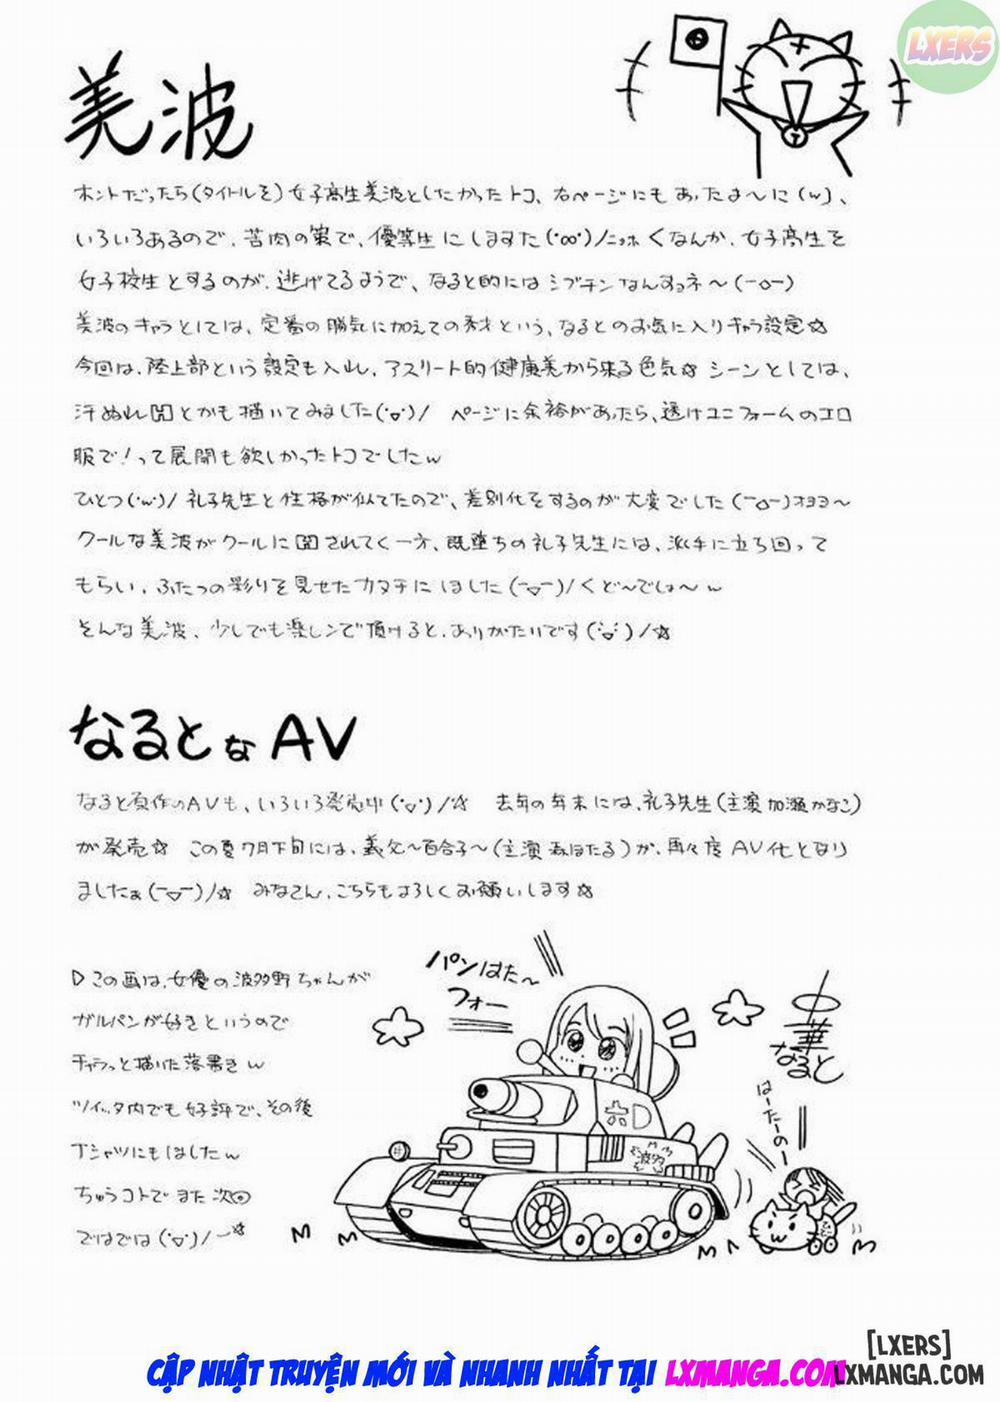 LXERS
美波
ホントだったら(タイトルを)女子高生美波としたかったトコ、右ページにもあったよ〜に(w)、
いろいろあるので、苦肉の策で、優等生にしますた(°∞°)/ニッホ くなんか、女子高生を
女子校生とするのが、逃げてるようで、なると的にはシブチンなんすョネ〜(ーoー)
美波のキャラとしては、定番の勝気に加えての秀才という、なるとのお気に入りキャラ設定☆
今回は、陸上部という設定も入れ、アスリート的健康美から来る色気☆ シーンとしては、
汗ぬれ とかも描いてみました(°▽°)/ ページに余裕があったら、透けユニフォームのエロ
服で!って展開も欲しかったトコでしたw
ひとつ(°w°)/ 礼子先生と性格が似てたので、差別化をするのが大変でした(ーoー)オヨヨ〜
クールな美波がクールに されてく一方、既堕ちの礼子先生には、派手に立ち回って
もらい、ふたつの彩りを見せたカタチにしました(ー▽ー)/くど〜でしょ〜w
そんな美波、少しでも楽しンで頂けると、ありがたいです(°▽°)/☆
なるとなAV
なると原作のAVも、いろいろ発売中(°▽°)/☆ 去年の年末には、礼子先生(主演 加瀬かなこ)
が発売☆ この夏7月下旬には、義父〜百合子〜(主演 森ほたる)が、再々度AV化となり
ましたぁ(ー▽ー)/☆ みなさん、こちらもよろしくお願いします☆
▷この画は、女優の波多野ちゃんが
ガルパンが好きというので
チャラっと描いた落書きw
ツイッタ内でも好評で、その後
Tシャツにもしましたw
ちゅうコトでまた次回
ではでは(°▽°)/ー☆
パンはた〜
フォー
中華なると
はーたーのー
CẬP NHẬT TRUYỆN MỚI VÀ NHANH NHẤT TẠI LXMANGA.COM
[LXERS]
LXMANGA.COM